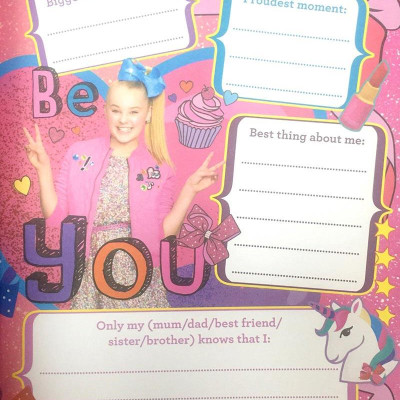 Proudest moment:
Be
Best thing about me:
you
Only my (mum/dad/best friend/
sister/brother) knows that I: